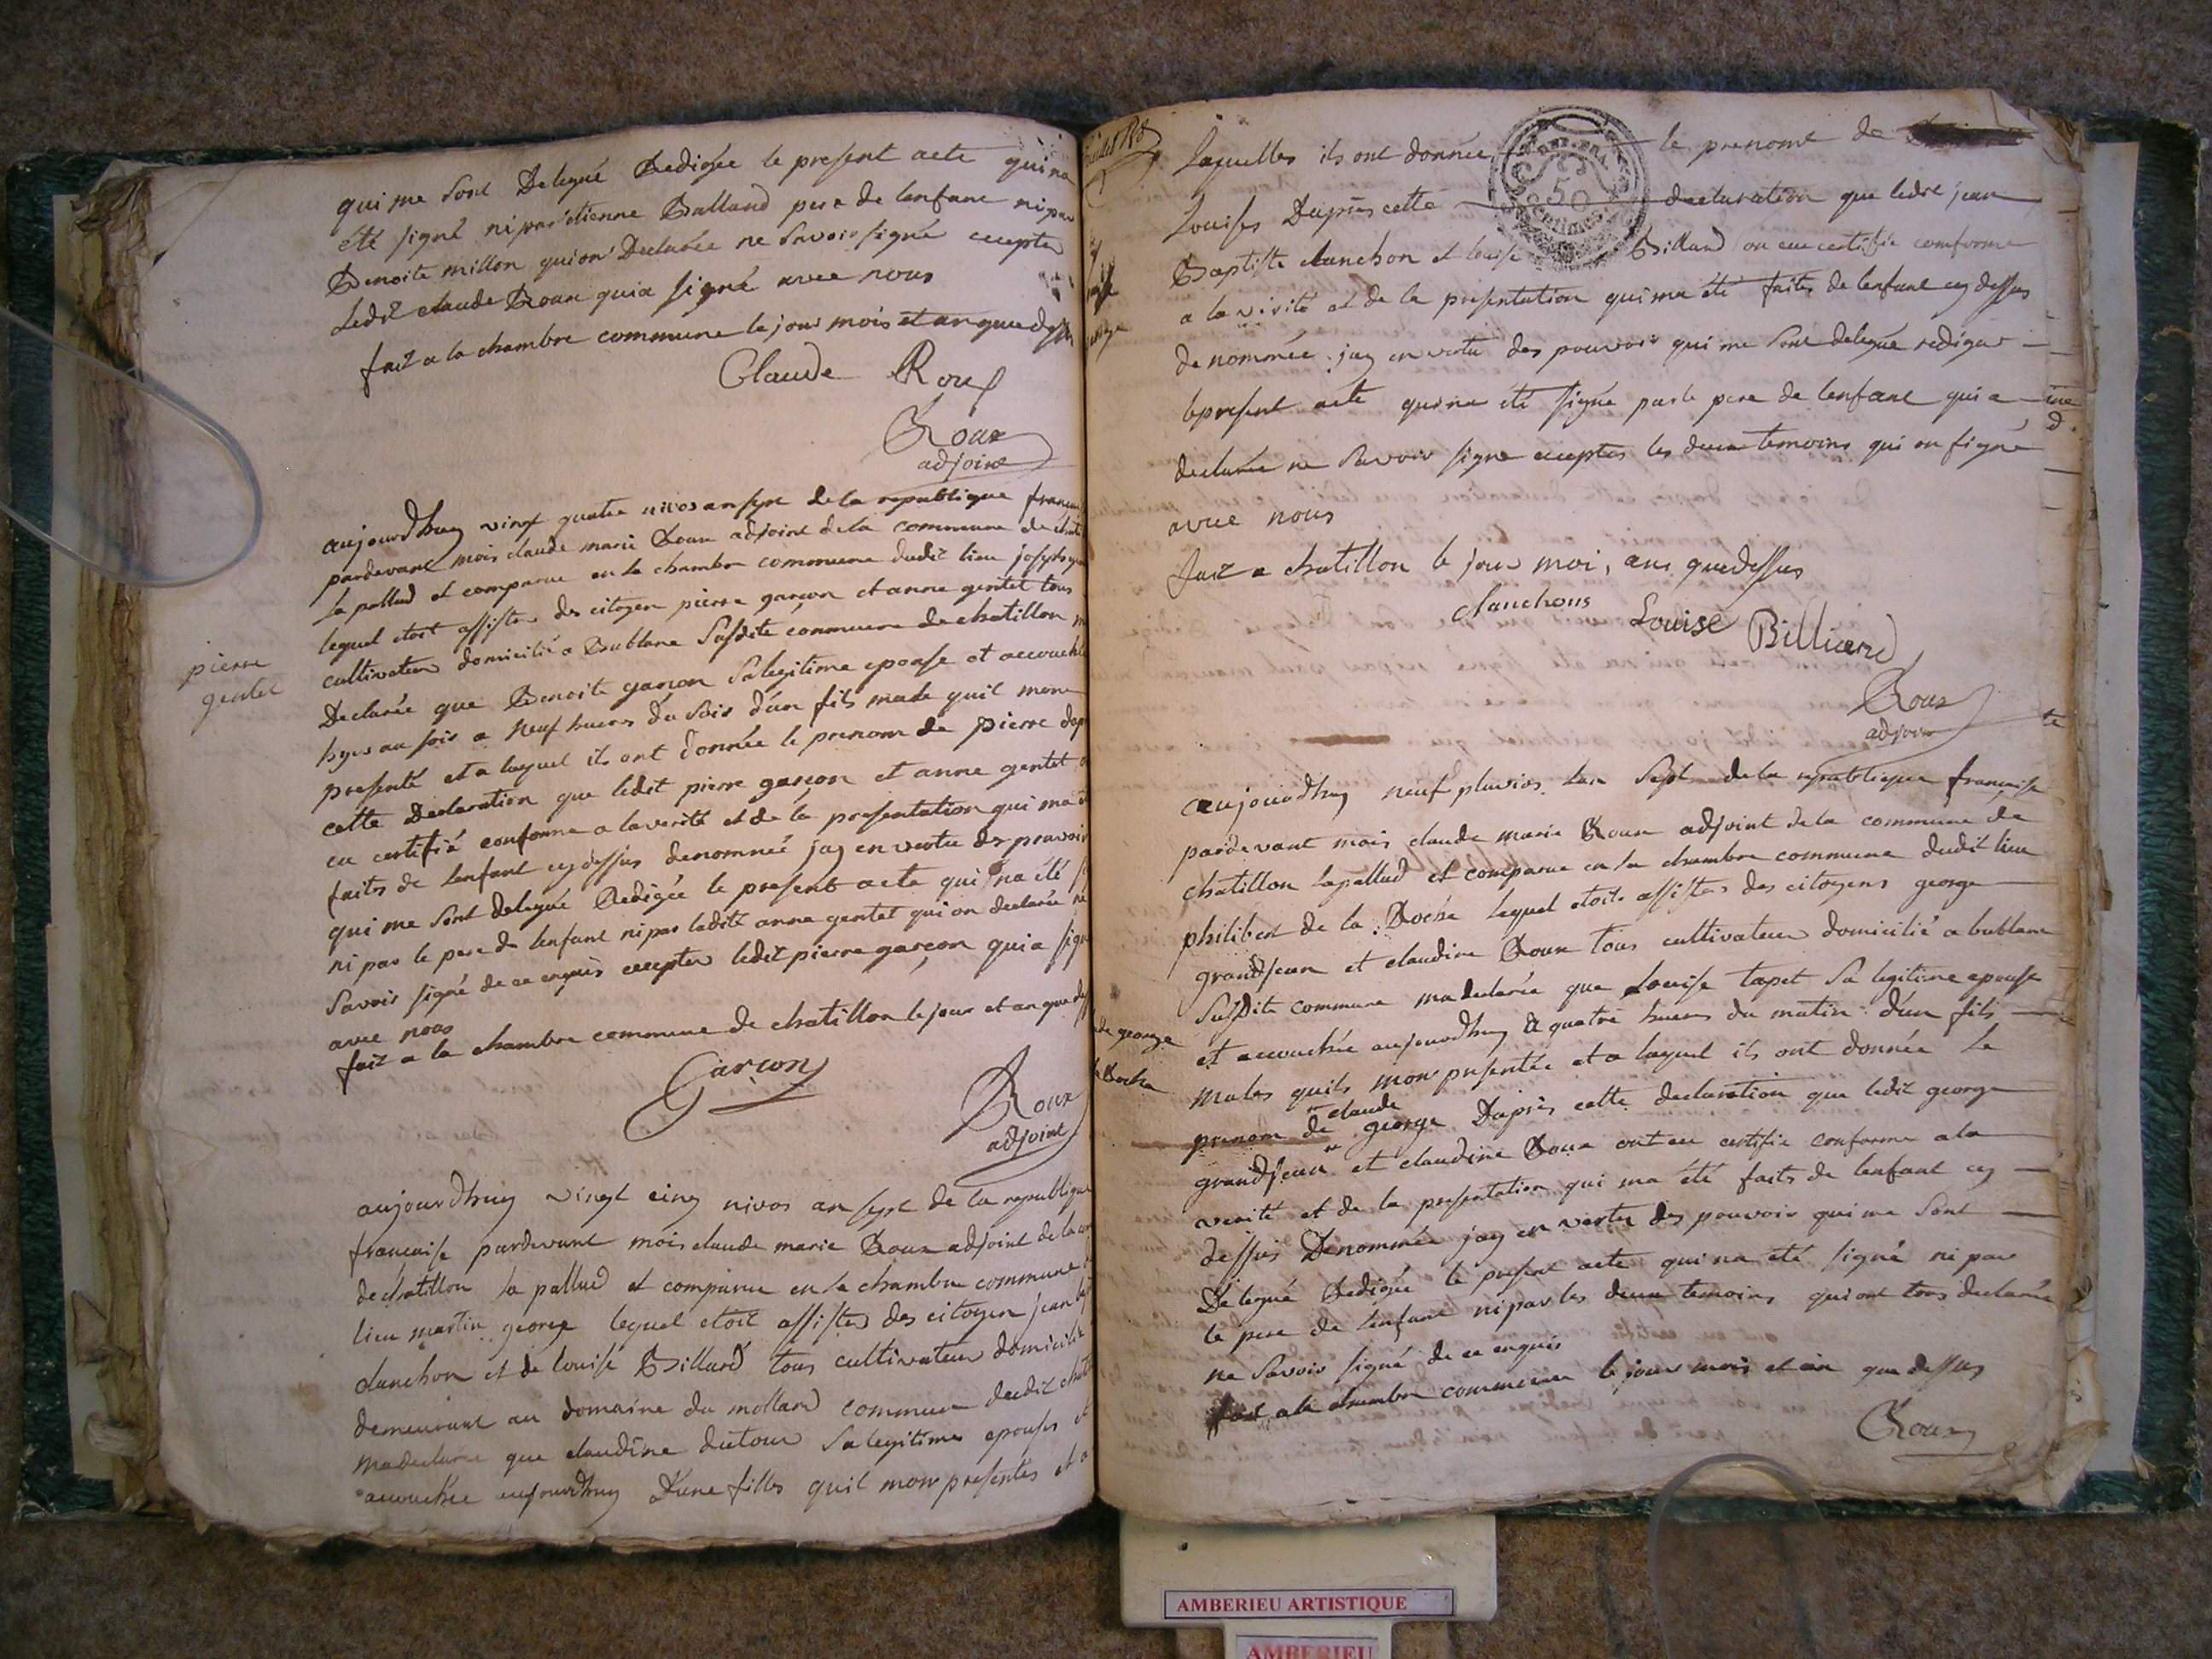 qui me sont Delegué Redigée le present acte qui na
été signé ni par étienne Balland pere de lenfant ni par
Benoite millon qui on Declarée ne savoir signé excepter
Ledit claude Roux qui a signé avec nous
fait a la chambre commune le jour mois et an que dessu
Claude Roux
Roux
adjoint
aujourdhuy vingt quatre nivos an sept de la republique francai
pardevant mois claude marie Roux adjoint de la commune de chati
la pallud et comparue en la chambre commune dudit lieu joseph
lequel etoit assister des citoyen pierre garçon et anne gentet tous
cultivateur domicilié a Bublane Susdite commune de chatillon m
Declarée que Benoite garçon Sa legitime epouse et accouché
hyer au soir a neuf heures du Soir d'un fils male quil mon
presenté et a laquel ils ont donnée le prenom de pierre dap
cette Declaration que ledit pierre garçon et anne gentet
eu certifié conforme a la verité et de la presentation qui ma
faits de lenfant cy dessus denomnée jay en vertu des pouvoir
qui me sont delegué Redigée le present acte qui na été
ni par le pere de lenfant ni par ladite anne gentet qui on declarée ne
Savoir signé de ce enquis excepter ledit pierre garçon qui a signé
avec nous
fait a la chambre commune de chatillon le jour et an que dess
pierre
gentet
Garçon
Roux
adjoint
aujourdhuy vingt cinq nivos an sept de la republique
francaise pardevant mois claude marie Roux adjoint de la com
de chatillon la pallud et comparue en la chambre commune
lieu martin george lequel etoit assister des citoyen jean
clanchon et de louise Billard tous cultivateur domicilié
demeurant au domaine du mollard commune dudit chati
ma declarée que claudine dutour Sa legitime epouses et
accouchée aujourdhuy D'une filles quil mon presentés et a
laquelles ils ont donnée le prenomt de
Louises Dapres cette declaration que ledit jean
REP. FRA.
50
centimes
Baptiste clanchon et louise Billard on eue certifie comforme
a la virité et de la presentation qui ma été faits de lenfant cy dessus
denommée jay en vertu des pouvoir qui me Sont delegué rediger
le present acte qui na été signé par le pere de lenfant qui a
declarée ne Savoir signe excepter les deux temoins qui on signé
avec nous
fait a chatillon le jour moi, ans que dessus
clanchons Louise Billiard
Roux
adjoin
aujourdhuy neuf pluvios lan Sept de la republique française
pardevant mois claude marie Roux adjoint de la commune de
chatillon lapallud et comparue en la chambre commune dudit lieu
philibert de la Roche lequel etoit assister des citoyens george
grandjean et claudine Roux tous cultivateur domicilié a bublane
Susdite commune ma declarée que Louise tapet Sa legitime epouse
et accouchée aujourdhuy a quatre heures du matin d'un fils
males quils mon presentée et a laquel ils ont donnée le
claude
prenom de george Dapres cette declaration que ledit george
grandjean et claudine Roux ont eu certifie conforme a la
verité et de la presentation qui ma été faits de lenfant cy
dessus Denommée jay en vertu des pouvoir qui me Sont
Delegué Redigée le present acte qui na été signé ni par
le pere de lenfant ni par les deux temoins qui ont tous declarée
ne Savoir signé de ce enquis
fait a la chambre commune le jour mois et an que dessus
de george
Roche
Roux
AMBERIEU ARTISTIQUE
AMBERIEU